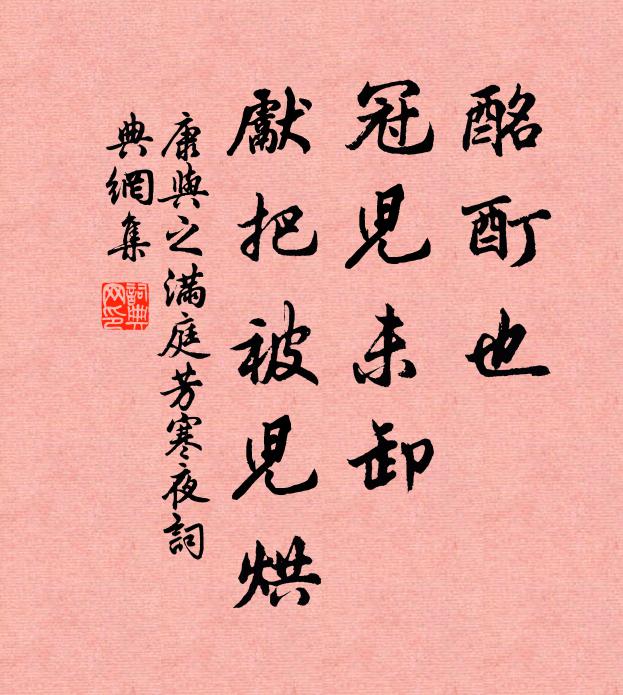 酩酊也
冠兒未卸
獻把被兒烘
康與之滿庭芳寒夜詞
典網集
詞典
网印